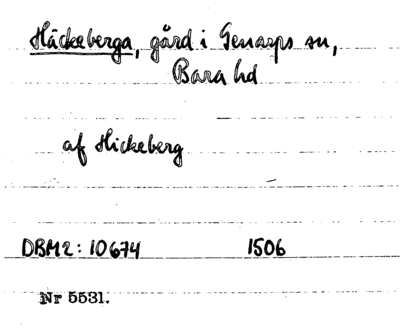 Häckeberga, gård i Genarps sn,
Bara hd
af Hickeberg
DBM2: 10674 1506
Nr 5531.